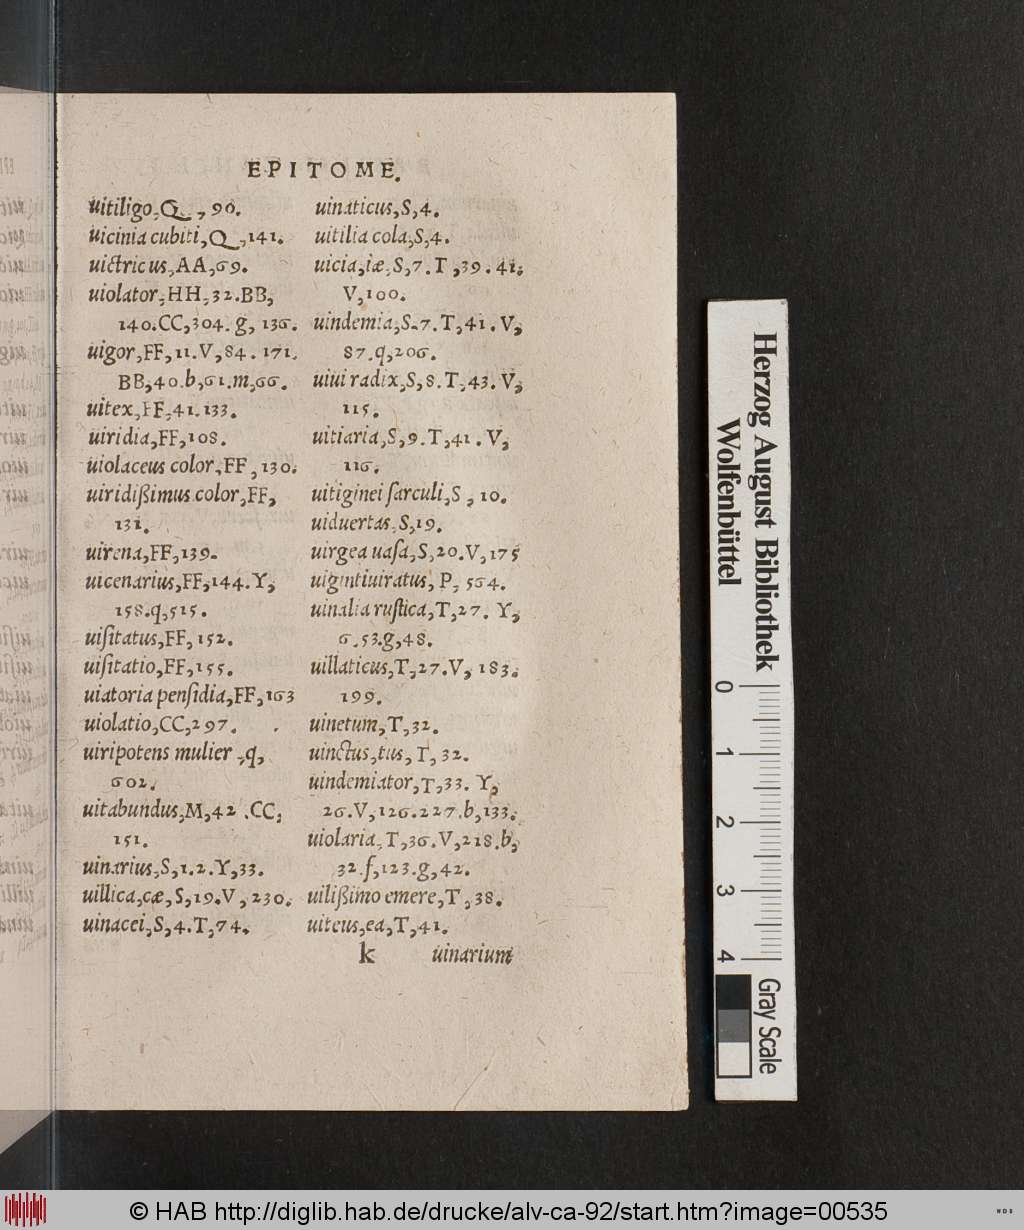 EPITOME.
uitiligo, Q, 90.
uicinia cubiti, Q, 141.
uictricus, AA, 69.
uiolator, HH, 32. BB,
140. CC, 304. g, 136.
uigor, FF, 11. V, 84. 171.
BB, 40. b, 61. m, 66.
uitex, FF, 41. 133.
uiridia, FF, 108.
uiolaceus color, FF, 130.
uiridißimus color, FF,
131.
uirena, FF, 139.
uicenarius, FF, 144. Y,
158. q, 515.
uiſitatus, FF, 152.
uiſitatio, FF, 155.
uiatoria penſidia, FF, 163
uiolatio, CC, 297.
uiripotens mulier, q,
602.
uitabundus, M, 42. CC,
151.
uinarius, S, 1. 2. Y, 33.
uillica, cæ, S, 19. V, 230.
uinacei, S, 4. T, 74.
uinaticus, S, 4.
uitilia cola, S, 4.
uicia, iæ, S, 7. T, 39. 41.
V, 100.
uindemia, S. 7. T, 41. V,
87. q, 206.
uiui radix, S, 8. T, 43. V,
115.
uitiaria, S, 9. T, 41. V,
116.
uitiginei ſarculi, S, 10.
uiduertas, S, 19.
uirgea uaſa, S, 20. V, 175
uigintiuiratus, P, 564.
uinalia ruſtica, T, 27. Y,
6. 53. g, 48.
uillaticus, T, 27. V, 183.
199.
uinetum, T, 32.
uinctus, tus, T, 32.
uindemiator, T, 33. Y,
26. V, 126. 227. b, 133.
uiolaria, T, 36. V, 218. b,
32. f, 123. g, 42.
uilißimo emere, T, 38.
uiteus, ea, T, 41.
k uinarium
Herzog August Bibliothek
Wolfenbüttel
0 1 2 3 4
Gray Scale
© HAB http://diglib.hab.de/drucke/alv-ca-92/start.htm?image=00535